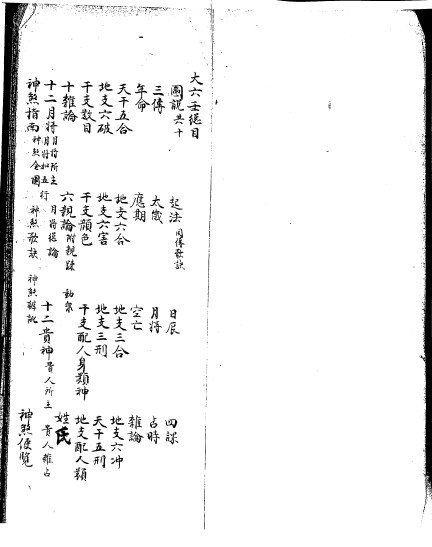 大六壬總目
圖說共十 起法同傳歌訣 日辰 四課
三傳 太歲 月將 占時
年命 應期 空亡 雜論
天干五合 地支六合 地支三合 地支六冲
地支六破 地支六害 地支三刑 天干五刑
干支數目 干支顏色 干支配人身類神 地支配人類
十雜論 六親論附親疎 姓氏
十二月將月將所主 月將和五行 月將總論 十二貴神貴人所主 貴人雜占
神煞指南神煞全圖 神煞歌訣 神煞解訛 神煞便覧